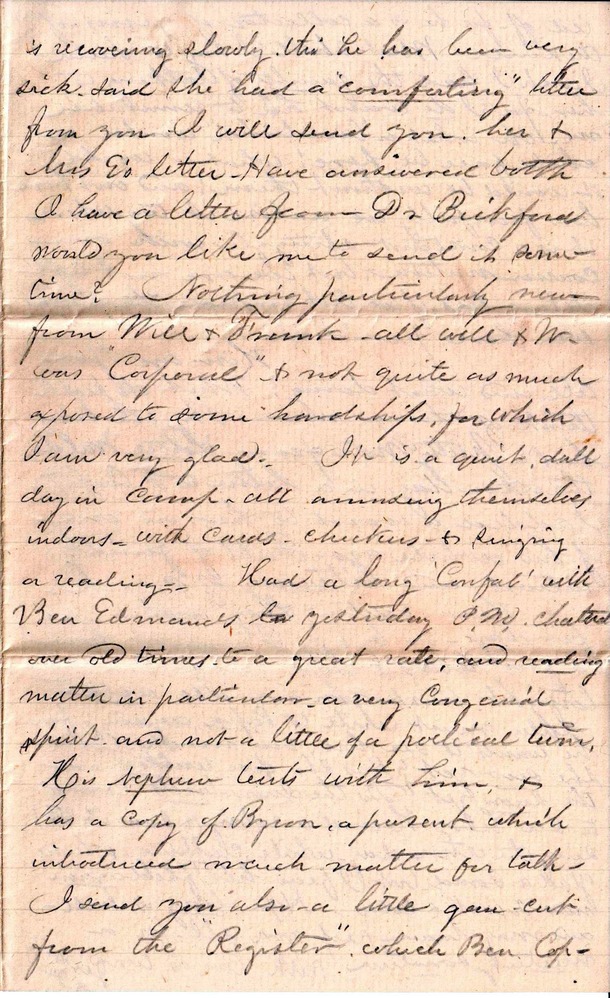 is recovering slowly. tho' he has been very
sick. said she had a "comforting" letter
from you I will send you. her &
Mrs E's letter - Have answered both
I have a letter from Dr Bickford
would you like me to send it some
time? Nothing particularly new
from Will & Frank - all well & W.
was "Corporal" & not quite as much
exposed to some hardships, for which
I am very glad. It is a quiet, dull
day in camp - all amusing themselves
indoors - with cards - checkers - & singing
or reading - Had a long 'Confab' with
Ben Edmands yesterday P.M. chatted
over old times - to a great rate, and reading
matter in particular - a very Congenial
spirit - and not a little of a poetical turn.
His nephew tents with him, &
has a copy of Byron, a present which
introduced much matter for talk -
I send you also - a little gem - cut
from the "Register" which Ben Cop-